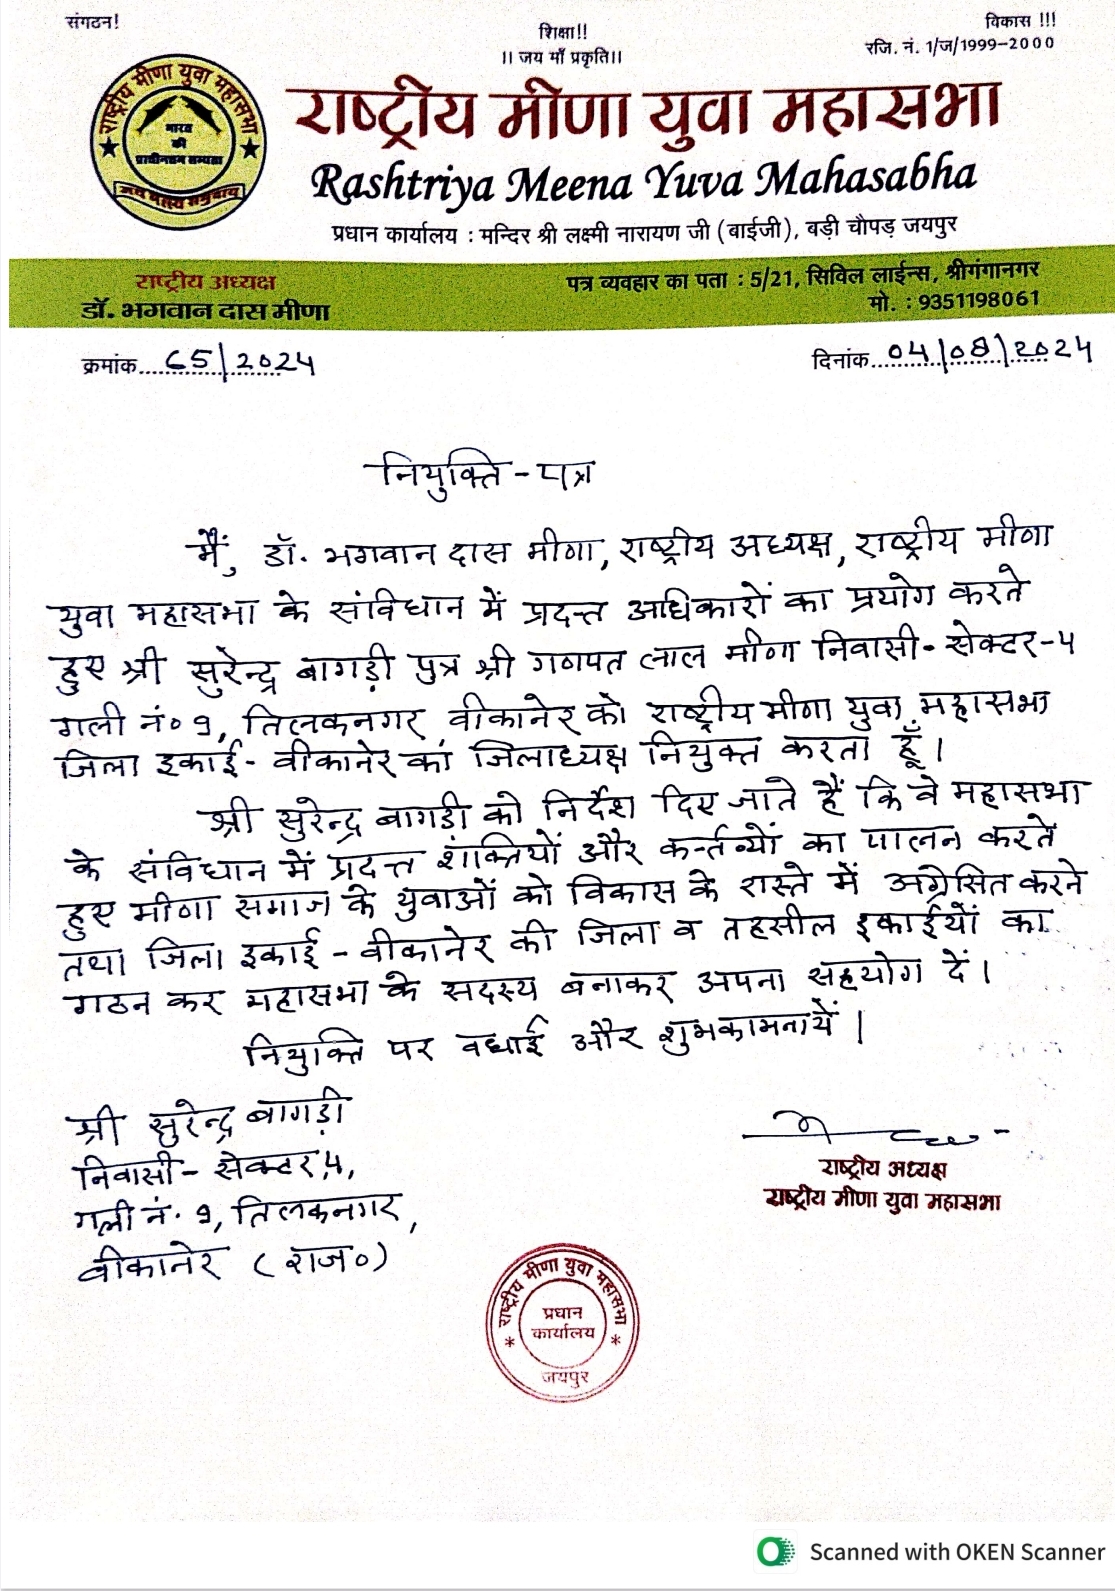 संगठन!
शिक्षा!!
विकास !!!
।। जय माँ प्रकृति।।
रजि. नं. 1/ज/1999-2000
राष्ट्रीय मीणा युवा महासभा
भारत
की
प्राचीनतम सभ्यता
जय मत्स्य समुदाय
राष्ट्रीय मीणा युवा महासभा
Rashtriya Meena Yuva Mahasabha
प्रधान कार्यालय : मन्दिर श्री लक्ष्मी नारायण जी (बाईजी), बड़ी चौपड़ जयपुर
राष्ट्रीय अध्यक्ष
डॉ. भगवान दास मीणा
पत्र व्यवहार का पता : 5/21, सिविल लाईन्स, श्रीगंगानगर
मो. : 9351198061
क्रमांक....65/2024
दिनांक....04/08/2024
नियुक्ति - पत्र
मैं, डॉ. भगवान दास मीणा, राष्ट्रीय अध्यक्ष, राष्ट्रीय मीणा
युवा महासभा के संविधान में प्रदत्त अधिकारों का प्रयोग करते
हुए श्री सुरेन्द्र बागड़ी पुत्र श्री गणपत लाल मीणा निवासी- सेक्टर-4
गली नं० 9, तिलकनगर, बीकानेर को राष्ट्रीय मीणा युवा महासभा
जिला इकाई - बीकानेर का जिलाध्यक्ष नियुक्त करता हूँ।
श्री सुरेन्द्र बागडी को निर्देश दिए जाते हैं कि वे महासभा
के संविधान में प्रदत्त शक्तियों और कर्त्तव्यों का पालन करते
हुए मीणा समाज के युवाओं को विकास के रास्ते में अग्रेसित करने
तथा जिला इकाई - बीकानेर की जिला व तहसील इकाईयों का
गठन कर महासभा के सदस्य बनाकर अपना सहयोग दें।
नियुक्ति पर बधाई और शुभकामनायें।
श्री सुरेन्द्र बागड़ी
निवासी - सेक्टर,4,
गली नं. 9, तिलकनगर,
बीकानेर (राज०)
राष्ट्रीय अध्यक्ष
राष्ट्रीय मीणा युवा महासभा
राष्ट्रीय मीणा युवा महासभा
प्रधान
कार्यालय
जयपुर
Scanned with OKEN Scanner